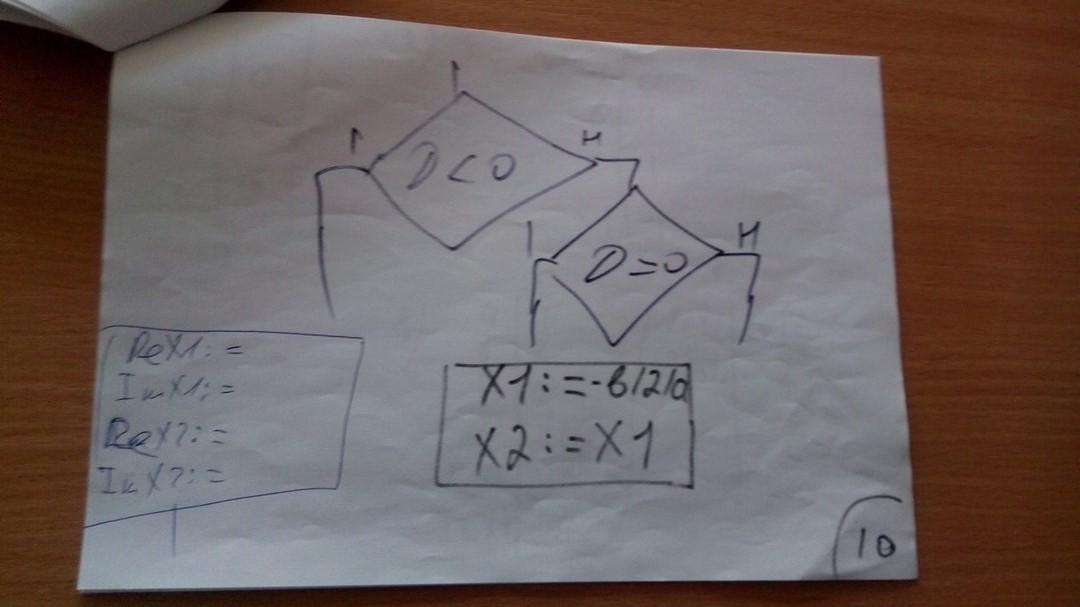 D<0
Н
D=0
Н
ReX1:=
ImX1:=
ReX2:=
ImX2:=
X1:=-b/2/a
X2:=X1
10